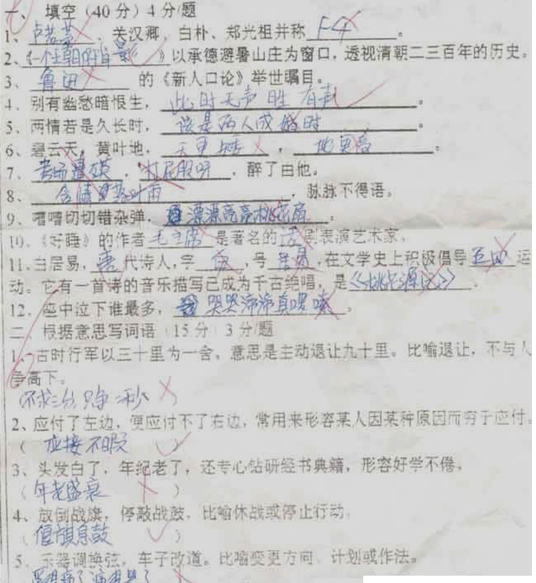 一、填空（40分）4分/题
1、卢若萱，关汉卿，白朴、郑光祖并称 F4 。
2、《一个王朝的背影》以承德避暑山庄为窗口，透视清朝二三百年的历史。
3、鲁迅 的《新人口论》举世瞩目。
4、别有幽愁暗恨生，此时无声胜有声。
5、两情若是久长时，该是两人成婚时。
6、碧云天，黄叶地，天更 ，地更
7、 ，醉了由他。
8、含情 ，脉脉不得语。
9、嘈嘈切切错杂弹，
10、《 睡》的作者毛主席是著名的 表演艺术家。
11、白居易，唐代诗人，字 白，号 居易，在文学史上积极倡导 五四 运
动。它有一首诗的音乐描写已成为千古绝唱，是《桃花源记》。
12、座中泣下谁最多，哭哭
二、根据意思写词语（15分）3分/题
1、古时行军以三十里为一舍，意思是主动退让九十里。比喻退让，不与人
争高下。
（不求三分只争一秒
2、应付了左边，便应付不了右边，常用来形容某人因某种原因而穷于应付。
（应接不暇 ）
3、头发白了，年纪老了，还专心钻研经书典籍，形容好学不倦，
（年老盛衰 ）
4、放倒战旗，停敲战鼓，比喻休战或停止行动。
（偃旗息鼓 ）
5、乐器调换弦，车子改道。比喻变更方向、计划或作法。